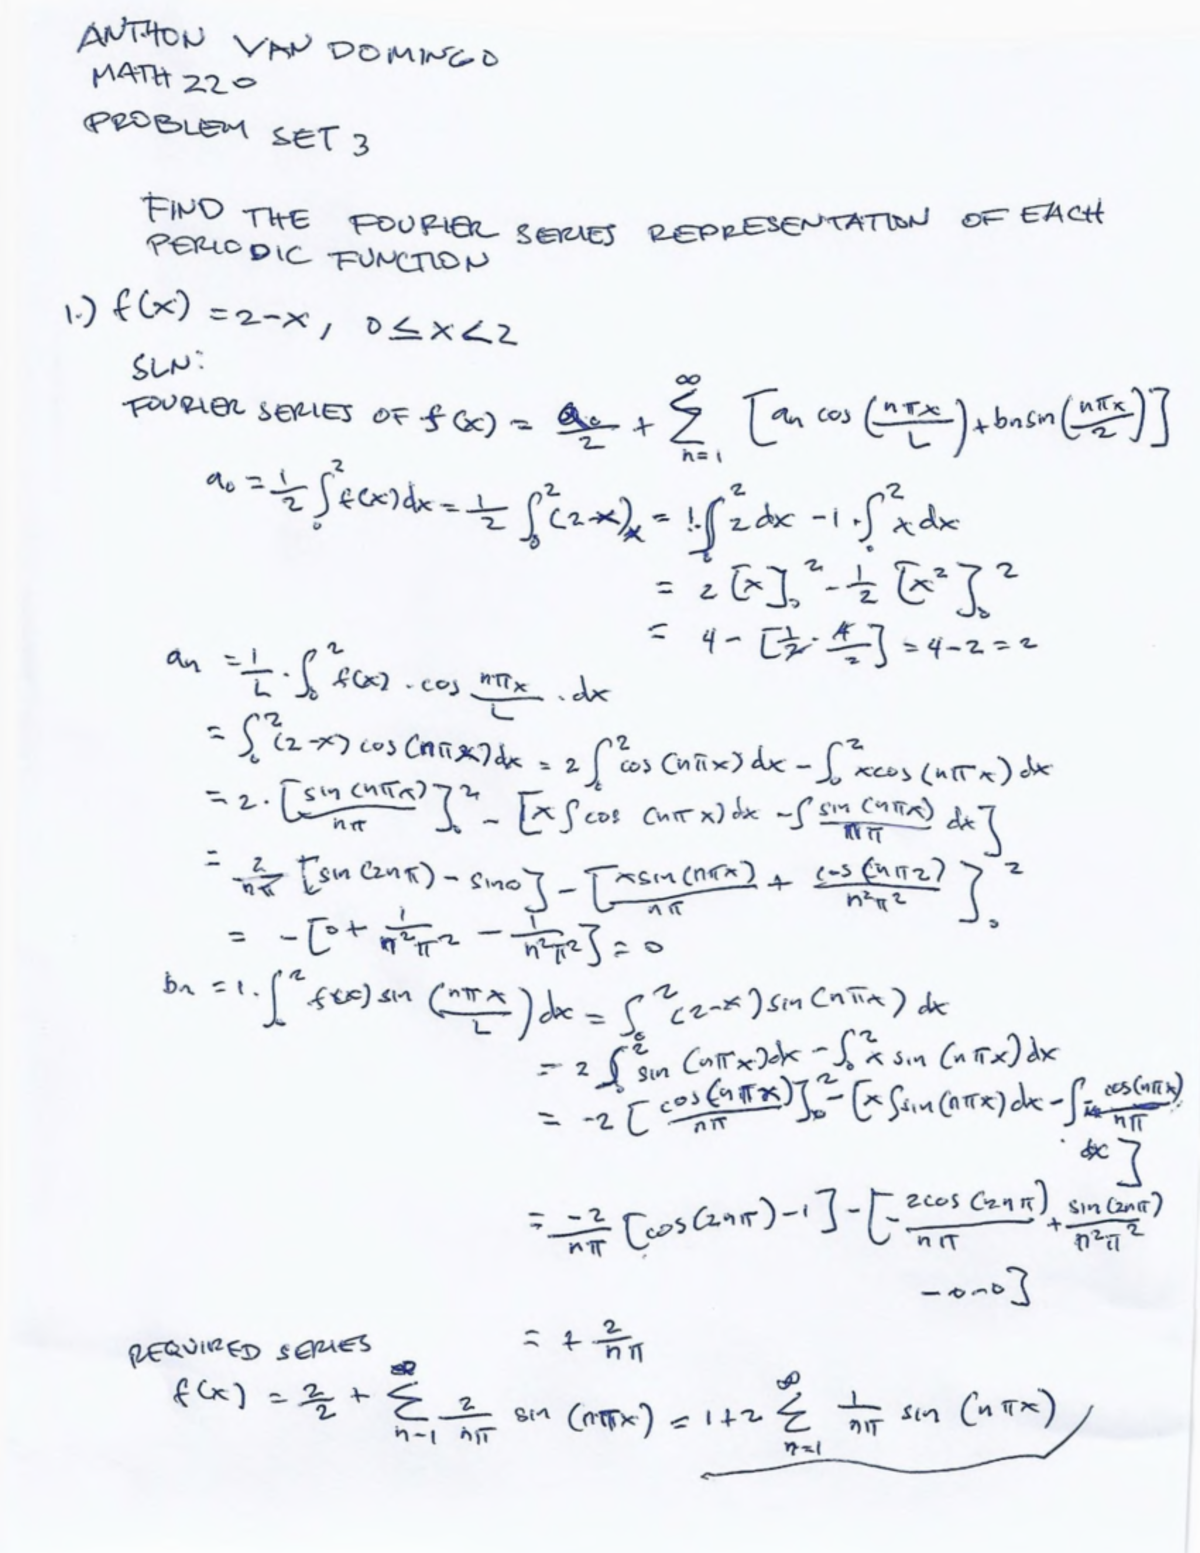 ANTHON VAN DOMINGO
MATH 220
PROBLEM SET 3
FIND THE FOURIER SERIES REPRESENTATION OF EACH
PERIODIC FUNCTION
1.) f(x) = 2-x, 0 ≤ x < 2
SLN:
FOURIER SERIES OF f(x) = a₀/2 + ∑_{n=1}^{∞} [an cos (nπx/L) + bn sin (nπx/2)]
a₀ = 1/2 ∫₀² f(x)dx = 1/2 ∫₀² (2-x)x = 1·∫₀² 2dx - 1·∫₀² x dx
= 2[x]₀² - 1/2 [x²]₀²
= 4 - [1/2 · 4/2] = 4-2 = 2
an = 1/L · ∫₀² f(x) · cos nπx/L · dx
= ∫₀² (2-x) cos (nπx)dx = 2∫₀² cos (nπx) dx - ∫₀² x cos (nπx) dx
= 2 · [sin (nπx)/nπ]₀² - [x∫cos (nπx) dx - ∫ sin (nπx)/nπ dx]
= 2/nπ [sin (2nπ) - sin 0] - [x sin (nπx)/nπ + cos (nπ2)/n²π²]₀²
= - [0 + 1/n²π² - 1/n²π²] = 0
bn = 1·∫₀² f(x) sin (nπx/L) dx = ∫₀² (2-x) sin (nπx) dx
= 2∫₀² sin (nπx)dx - ∫₀² x sin (nπx) dx
= -2 [cos (nπx)/nπ]₀² - [x∫sin (nπx) dx - ∫- cos (nπx)/nπ
· dx]
= -2/nπ [cos (2nπ) - 1] - [- 2cos (2nπ)/nπ + sin (2nπ)/n²π²
-0-0]
= + 2/nπ
REQUIRED SERIES
f(x) = 2/2 + ∑_{n-1}^{∞} 2/nπ sin (nπx) = 1+2 ∑_{n=1}^{∞} 1/nπ sin (nπx)